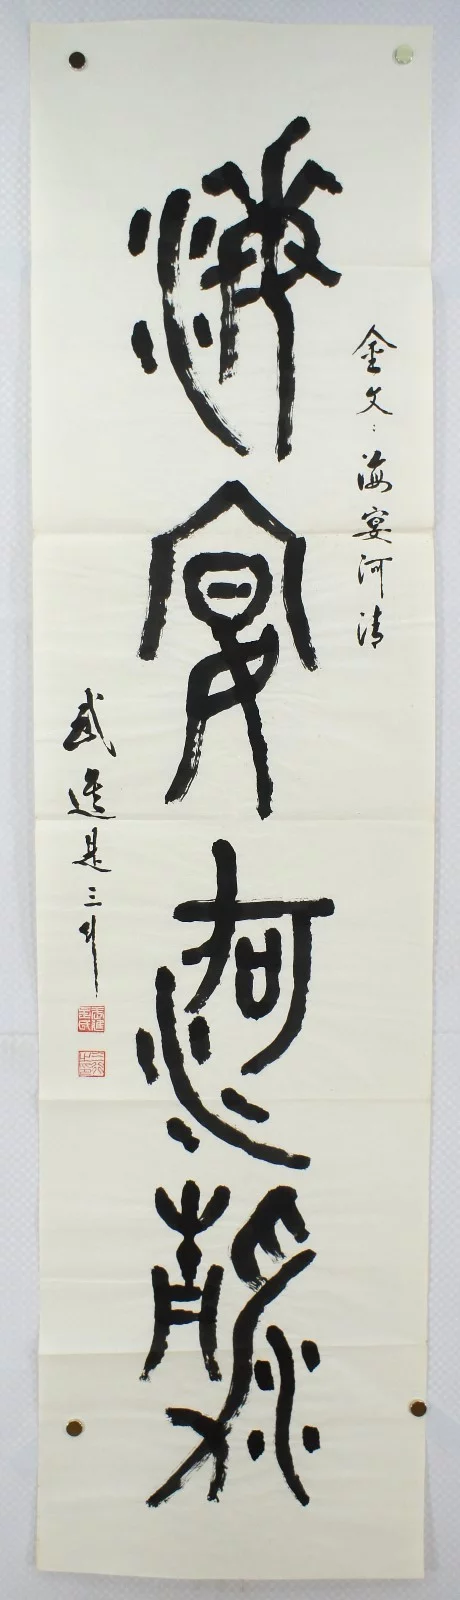 海宴河清
金文：海宴河清
武進是三